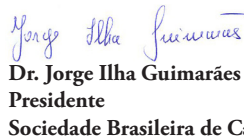 Jorge Ilha Guimarães
Dr. Jorge Ilha Guimarães
Presidente
Sociedade Brasileira de C